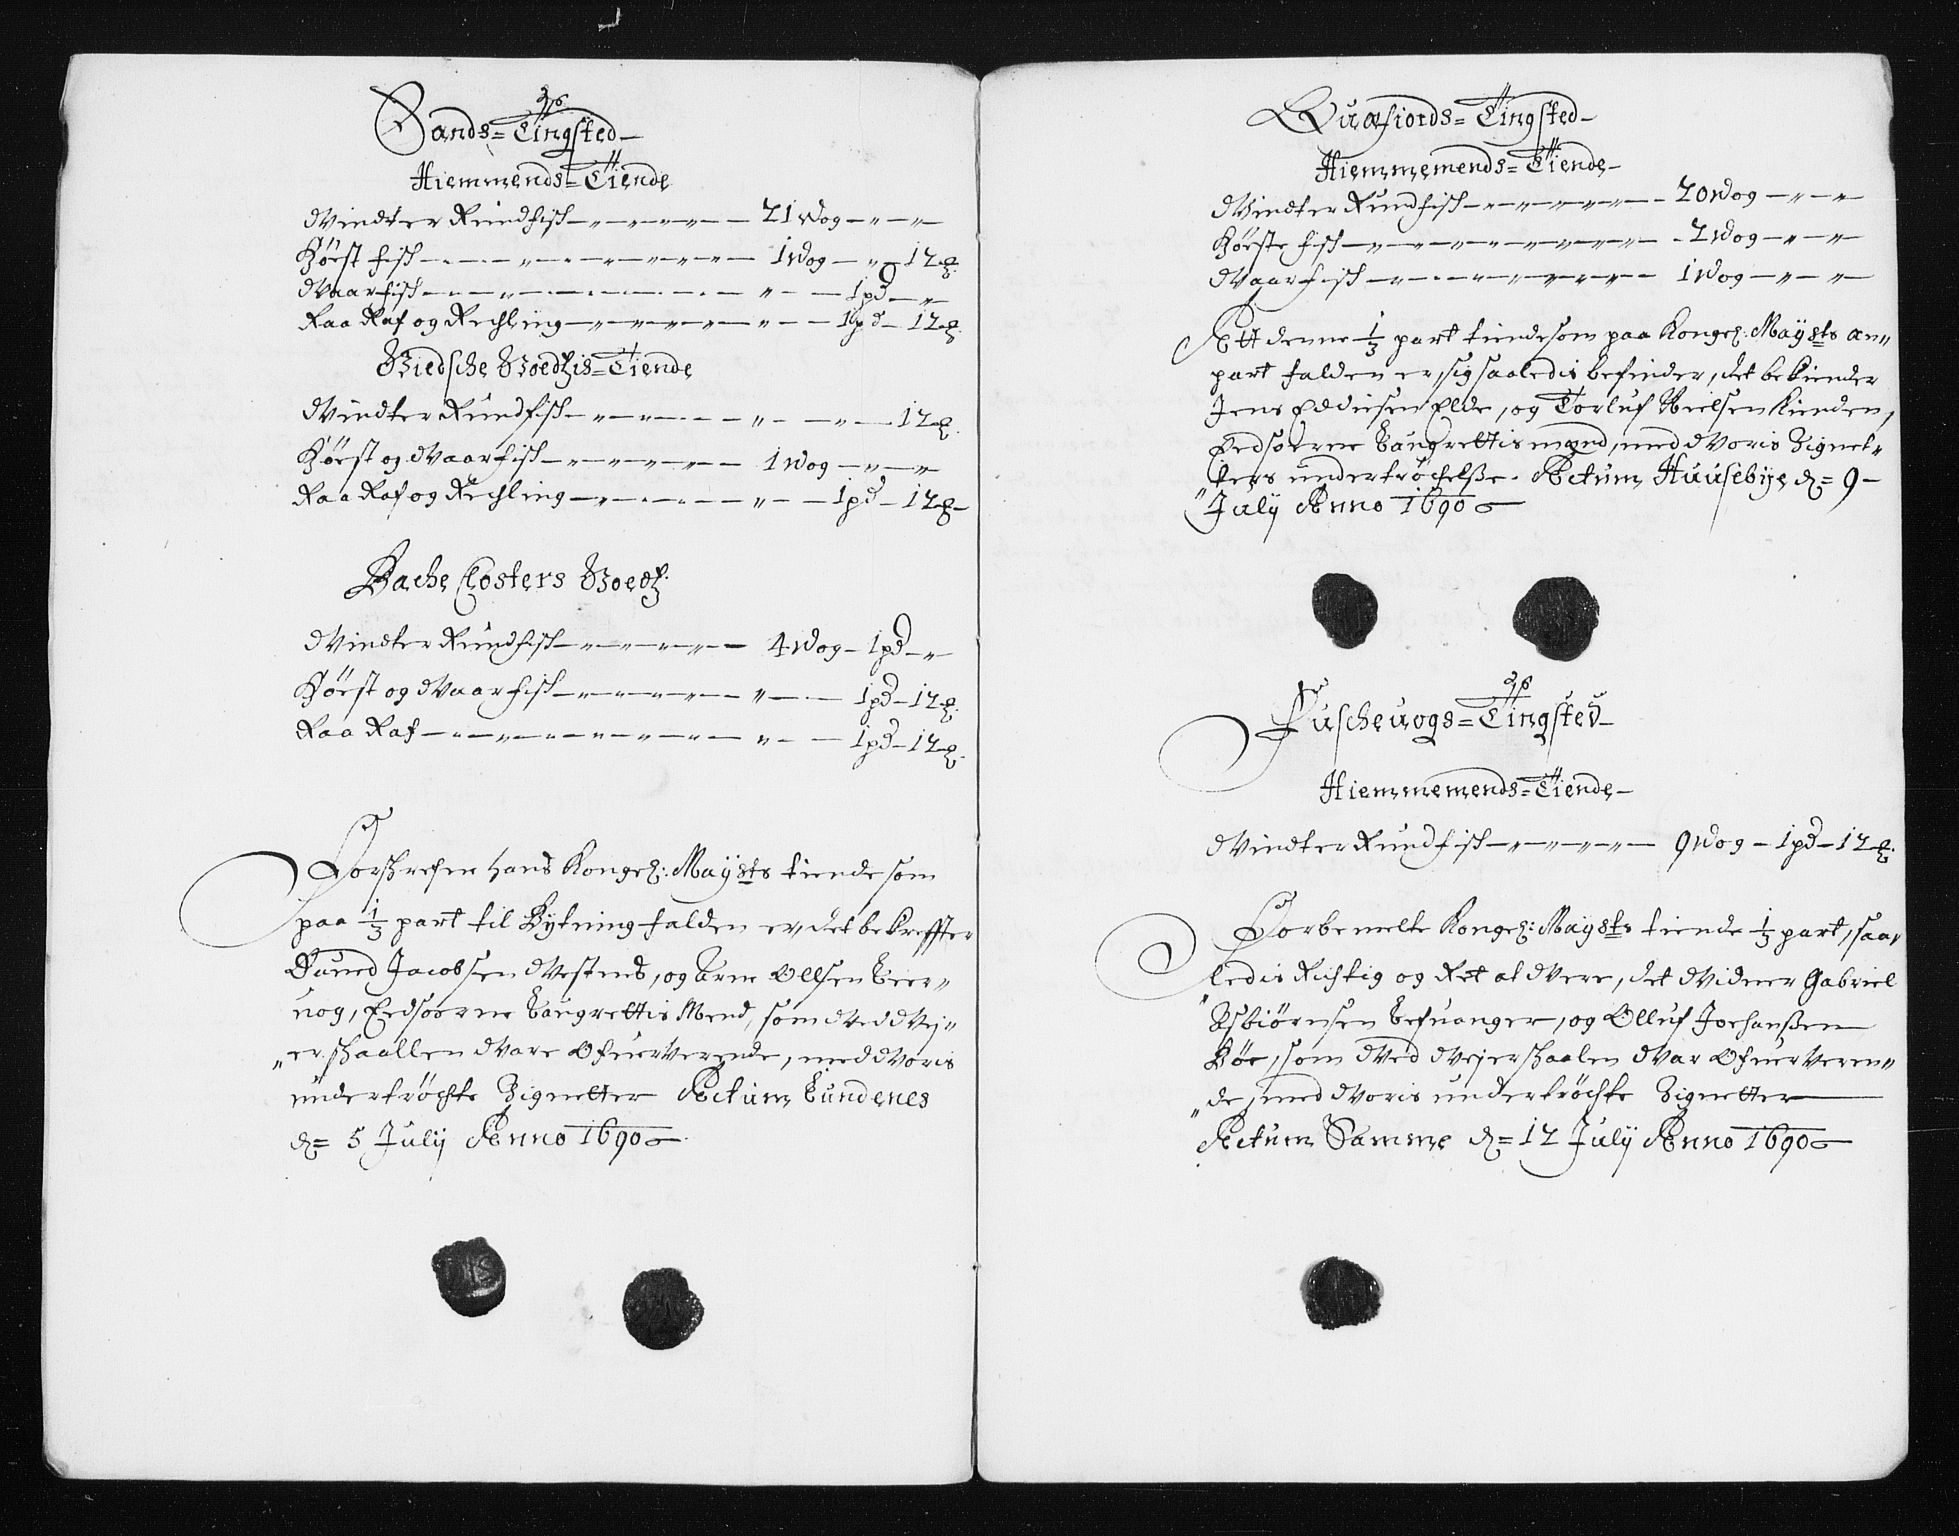 Sands= Tingsted
Hiemmends= Tiende
Windter Rundfisk 21 Wog
Höest fisk 1 Wog 12
Waarfisk 1 pd
Raa Raf og Rechling 1 pd 12
Giedsche Goedtzis= Tiende
Windter Rundfisk 12
Höest og Waarfisk 1 Wog
Raa Raf og Rechling 1 pd 12
Bache Closters Goedtz
Windter Rundfisk 4 Wog 1 pd
Höest og Waarfisk 1 pd 12
Raa Raf 1 pd 12
Forskrefne hans Kongel: Mayѕts tiende som
paa 1/3 part til Bytning falden er, det bekreffter
Dauid Jacobsen Westnes, og Arne Ollsen
uog, Eedsoerne Laugrettis Mend, som Ved Vej„
„er skaallen Vare Ofuerverende, med Voris
undertröchte Zignetter Actum Lundenes
d= 5 July Anno 1690
Quæfiords= Tingsted
Hiemmemends= Tiende
Windter Rundfisk 20 Wog
Höeste fisk 2 Wog
Waarfisk 1 Wog
Att denne 1/3 part tiende som paa Kongel: Maysts an„
part falden er, sig saaledis befinder, det bekiender
Jens Elde, og Torluf Nielsen Kinden,
Eedsoerne Laugrettismænd, med Voris Zignet„
„ters undertröchelsse. Actum Huusebye d= 9
July Anno 1690
Fuscheuogs= Tingsted
Hiemmemends= Tiende
Windter Rundfisk 9 Wog 1 pd 12
Forbemelte Kongel: Maysts tiende 1/3 part, saa„
ledis Richtig og Ret at Vere, det Vidner Gabriel
Asbiörnsen og Olluf Joehanssen
Böe, som Ved Vejerskaalen Var Ofuerveren„
„de, med Voris undertröchte Zignetter
Actum Samme d= 12 July Anno 1690